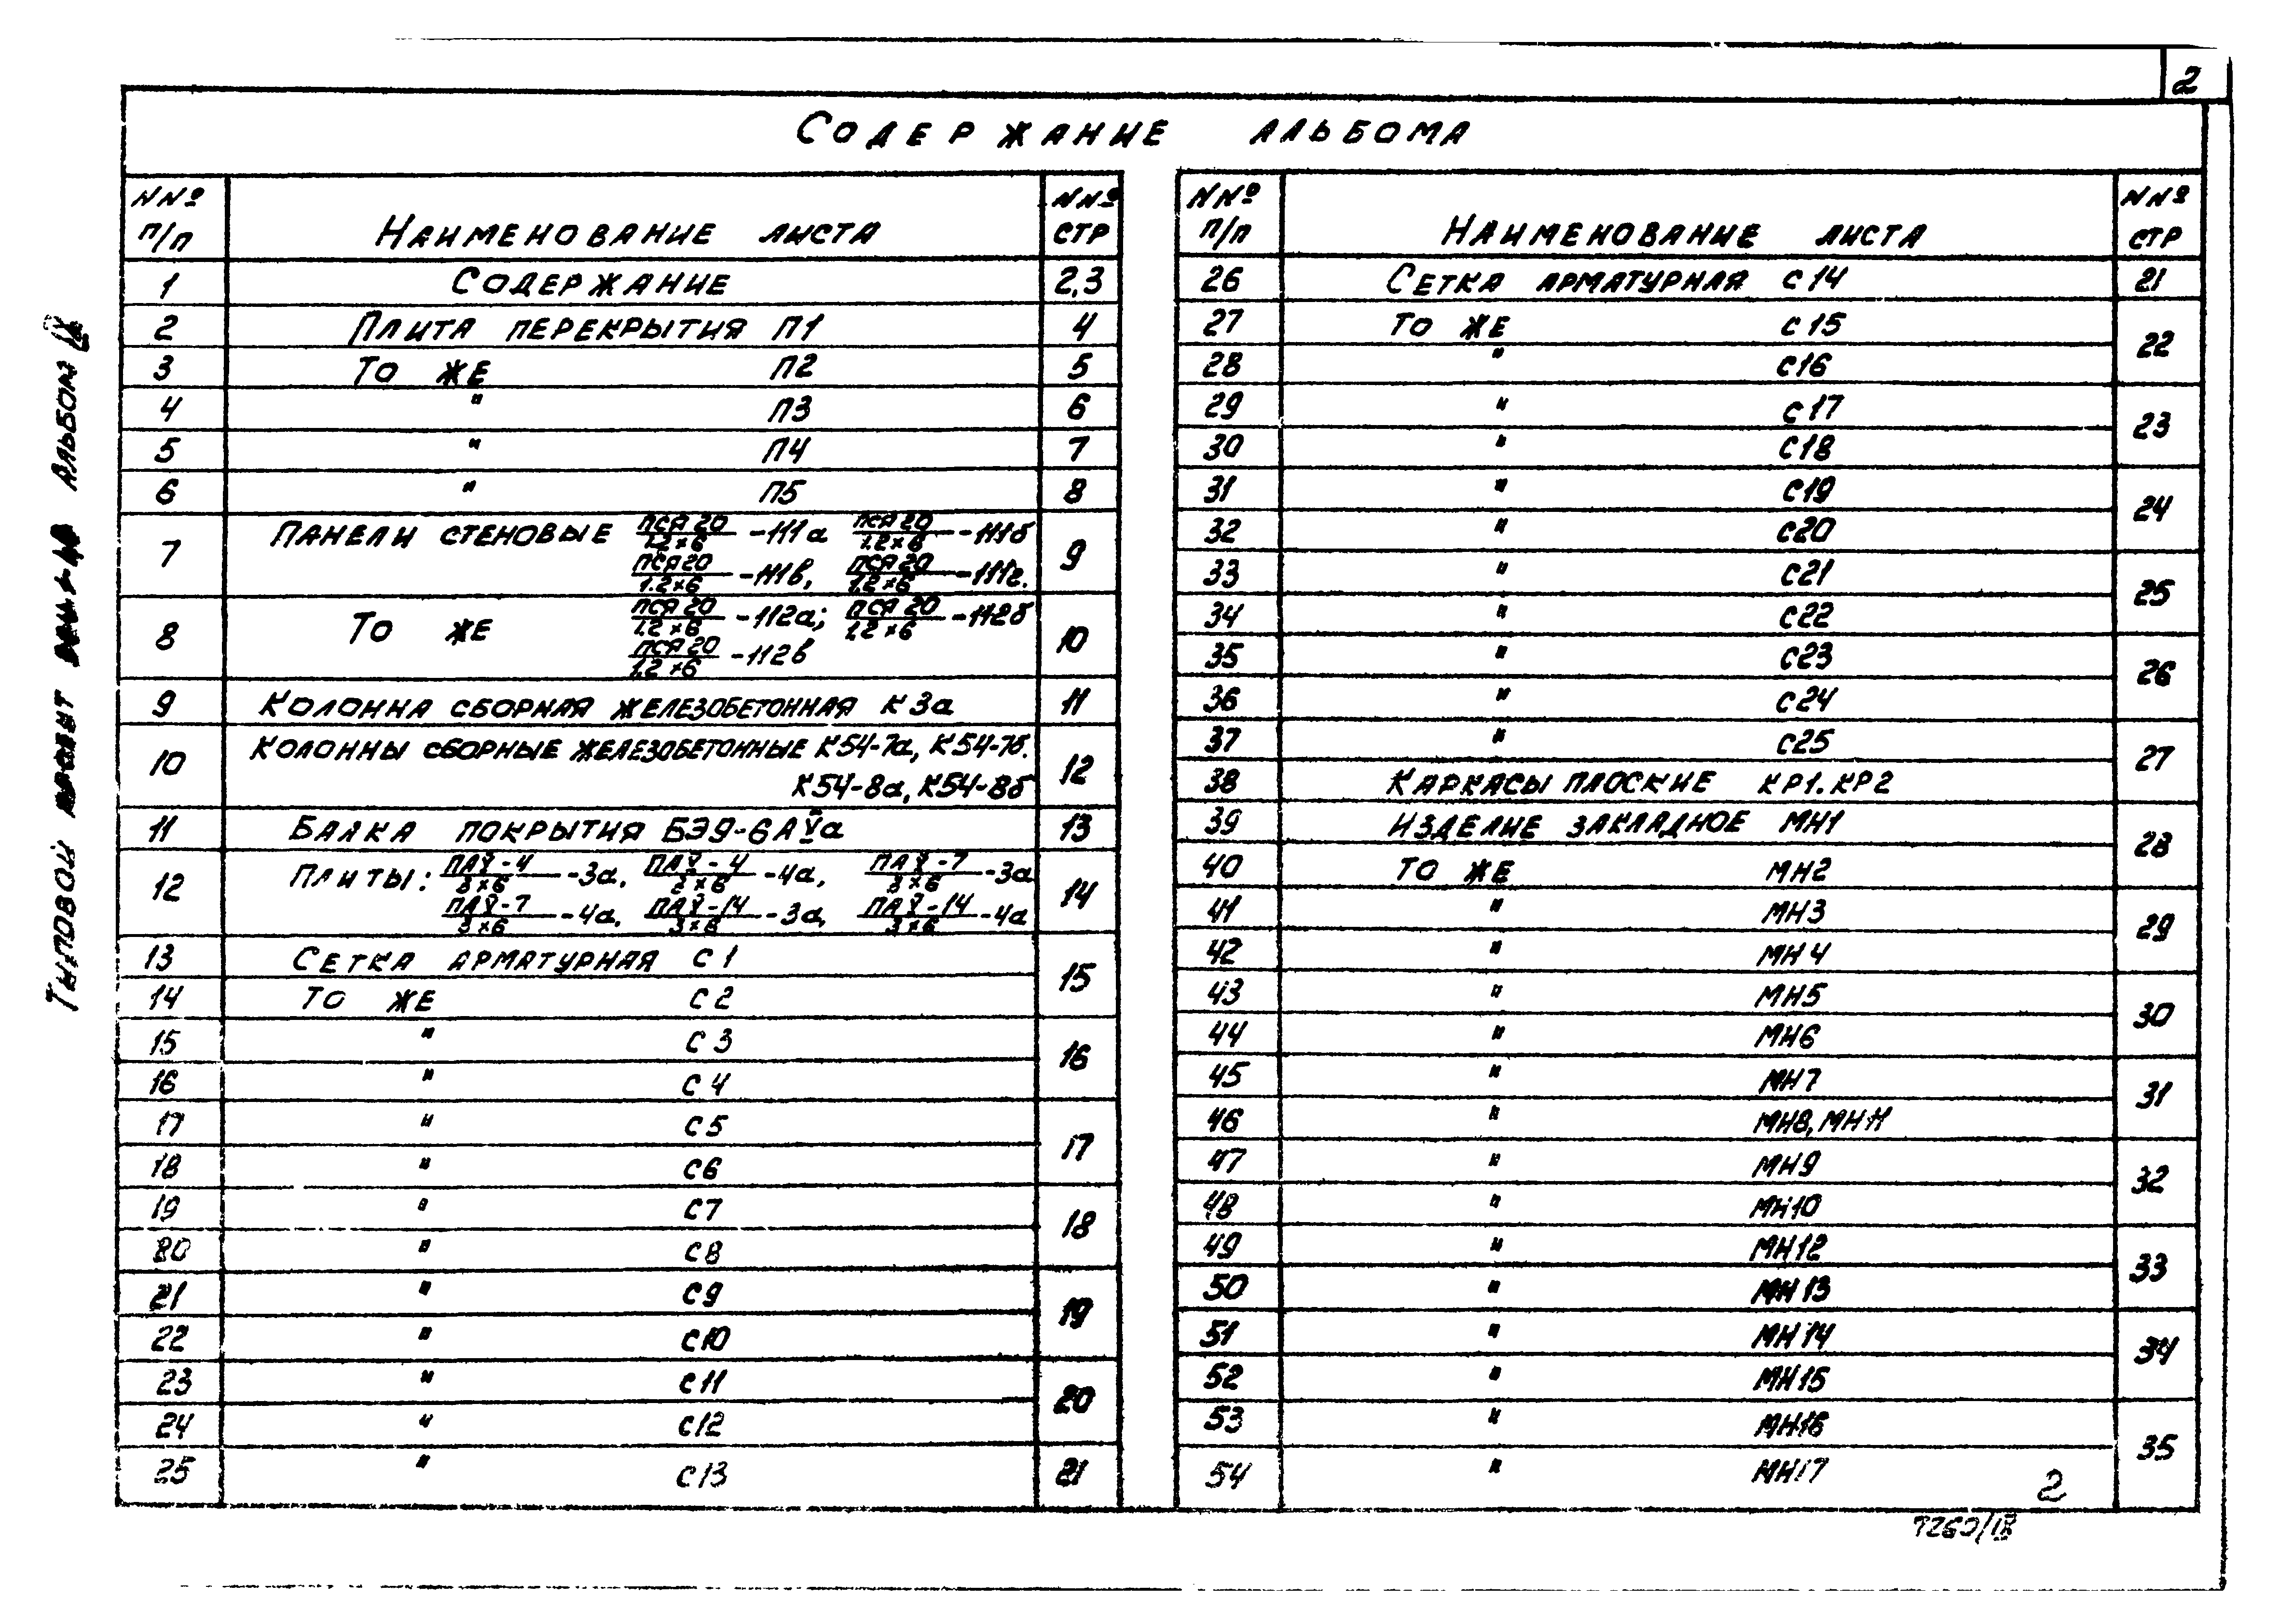 2
СОДЕРЖАНИЕ АЛЬБОМА
NNº п/п НАИМЕНОВАНИЕ ЛИСТА NNº СТР
1 СОДЕРЖАНИЕ 2,3
2 ПЛИТА ПЕРЕКРЫТИЯ П1 4
3 ТО ЖЕ П2 5
4 " П3 6
5 " П4 7
6 " П5 8
7 ПАНЕЛИ СТЕНОВЫЕ ПСЯ 20/1.2×6 -111а ПСЯ 20/1.2×6 -111б 9
ПСЯ 20/1.2×6 -111в, ПСЯ 20/1.2×6 -111г.
8 ТО ЖЕ ПСЯ 20/1.2×6 -112а; ПСЯ 20/1.2×6 -112б 10
ПСЯ 20/1.2×6 -112в
9 КОЛОННА СБОРНАЯ ЖЕЛЕЗОБЕТОННАЯ К 3а 11
10 КОЛОННЫ СБОРНЫЕ ЖЕЛЕЗОБЕТОННЫЕ К54-7а, К54-7б. 12
К54-8а, К54-8б
11 БАЛКА ПОКРЫТИЯ БЭ9-6АVа 13
12 ПЛИТЫ: ПАV-4/3×6 -3а, ПАV-4/3×6 -4а, ПАV-7/3×6 -3а 14
ПАV-7/3×6 -4а, ПАV-14/3×6 -3а, ПАV-14/3×6 -4а
13 СЕТКА АРМАТУРНАЯ С 1 15
14 ТО ЖЕ С 2
15 " С 3 16
16 " С 4
17 " С5 17
18 " С6
19 " С7 18
20 " С8
21 " С9 19
22 " С10
23 " С11 20
24 " С12
25 " С13 21
NNº п/п НАИМЕНОВАНИЕ ЛИСТА NNº СТР
26 СЕТКА АРМАТУРНАЯ С 14 21
27 ТО ЖЕ С 15 22
28 " С16
29 " С17 23
30 " С18
31 " С19 24
32 " С20
33 " С21 25
34 " С22
35 " С23 26
36 " С24
37 " С25 27
38 КАРКАСЫ ПЛОСКИЕ КР1. КР2
39 ИЗДЕЛИЕ ЗАКЛАДНОЕ МН1 28
40 ТО ЖЕ МН2
41 " МН3 29
42 " МН4
43 " МН5 30
44 " МН6
45 " МН7 31
46 " МН8, МН11
47 " МН9 32
48 " МН10
49 " МН12 33
50 " МН13
51 " МН14 34
52 " МН15
53 " МН16 35
54 " МН17
2
7260/18
ТИПОВОЙ ПРОЕКТ АЛЬБОМ IX